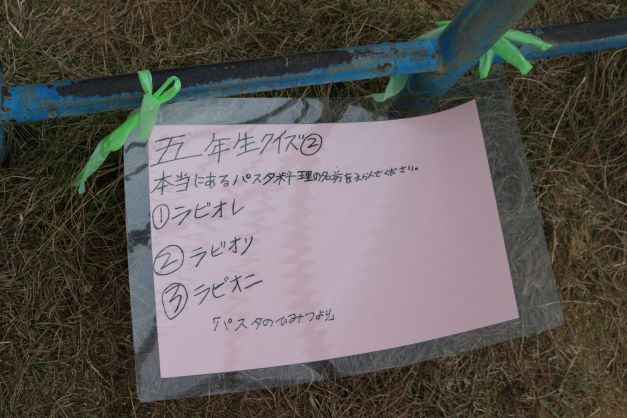 五年生クイズ②
本当にあるパスタ料理の名前をえらんでください。
①ラビオレ
②ラビオリ
③ラビオニ
「パスタのひみつより」